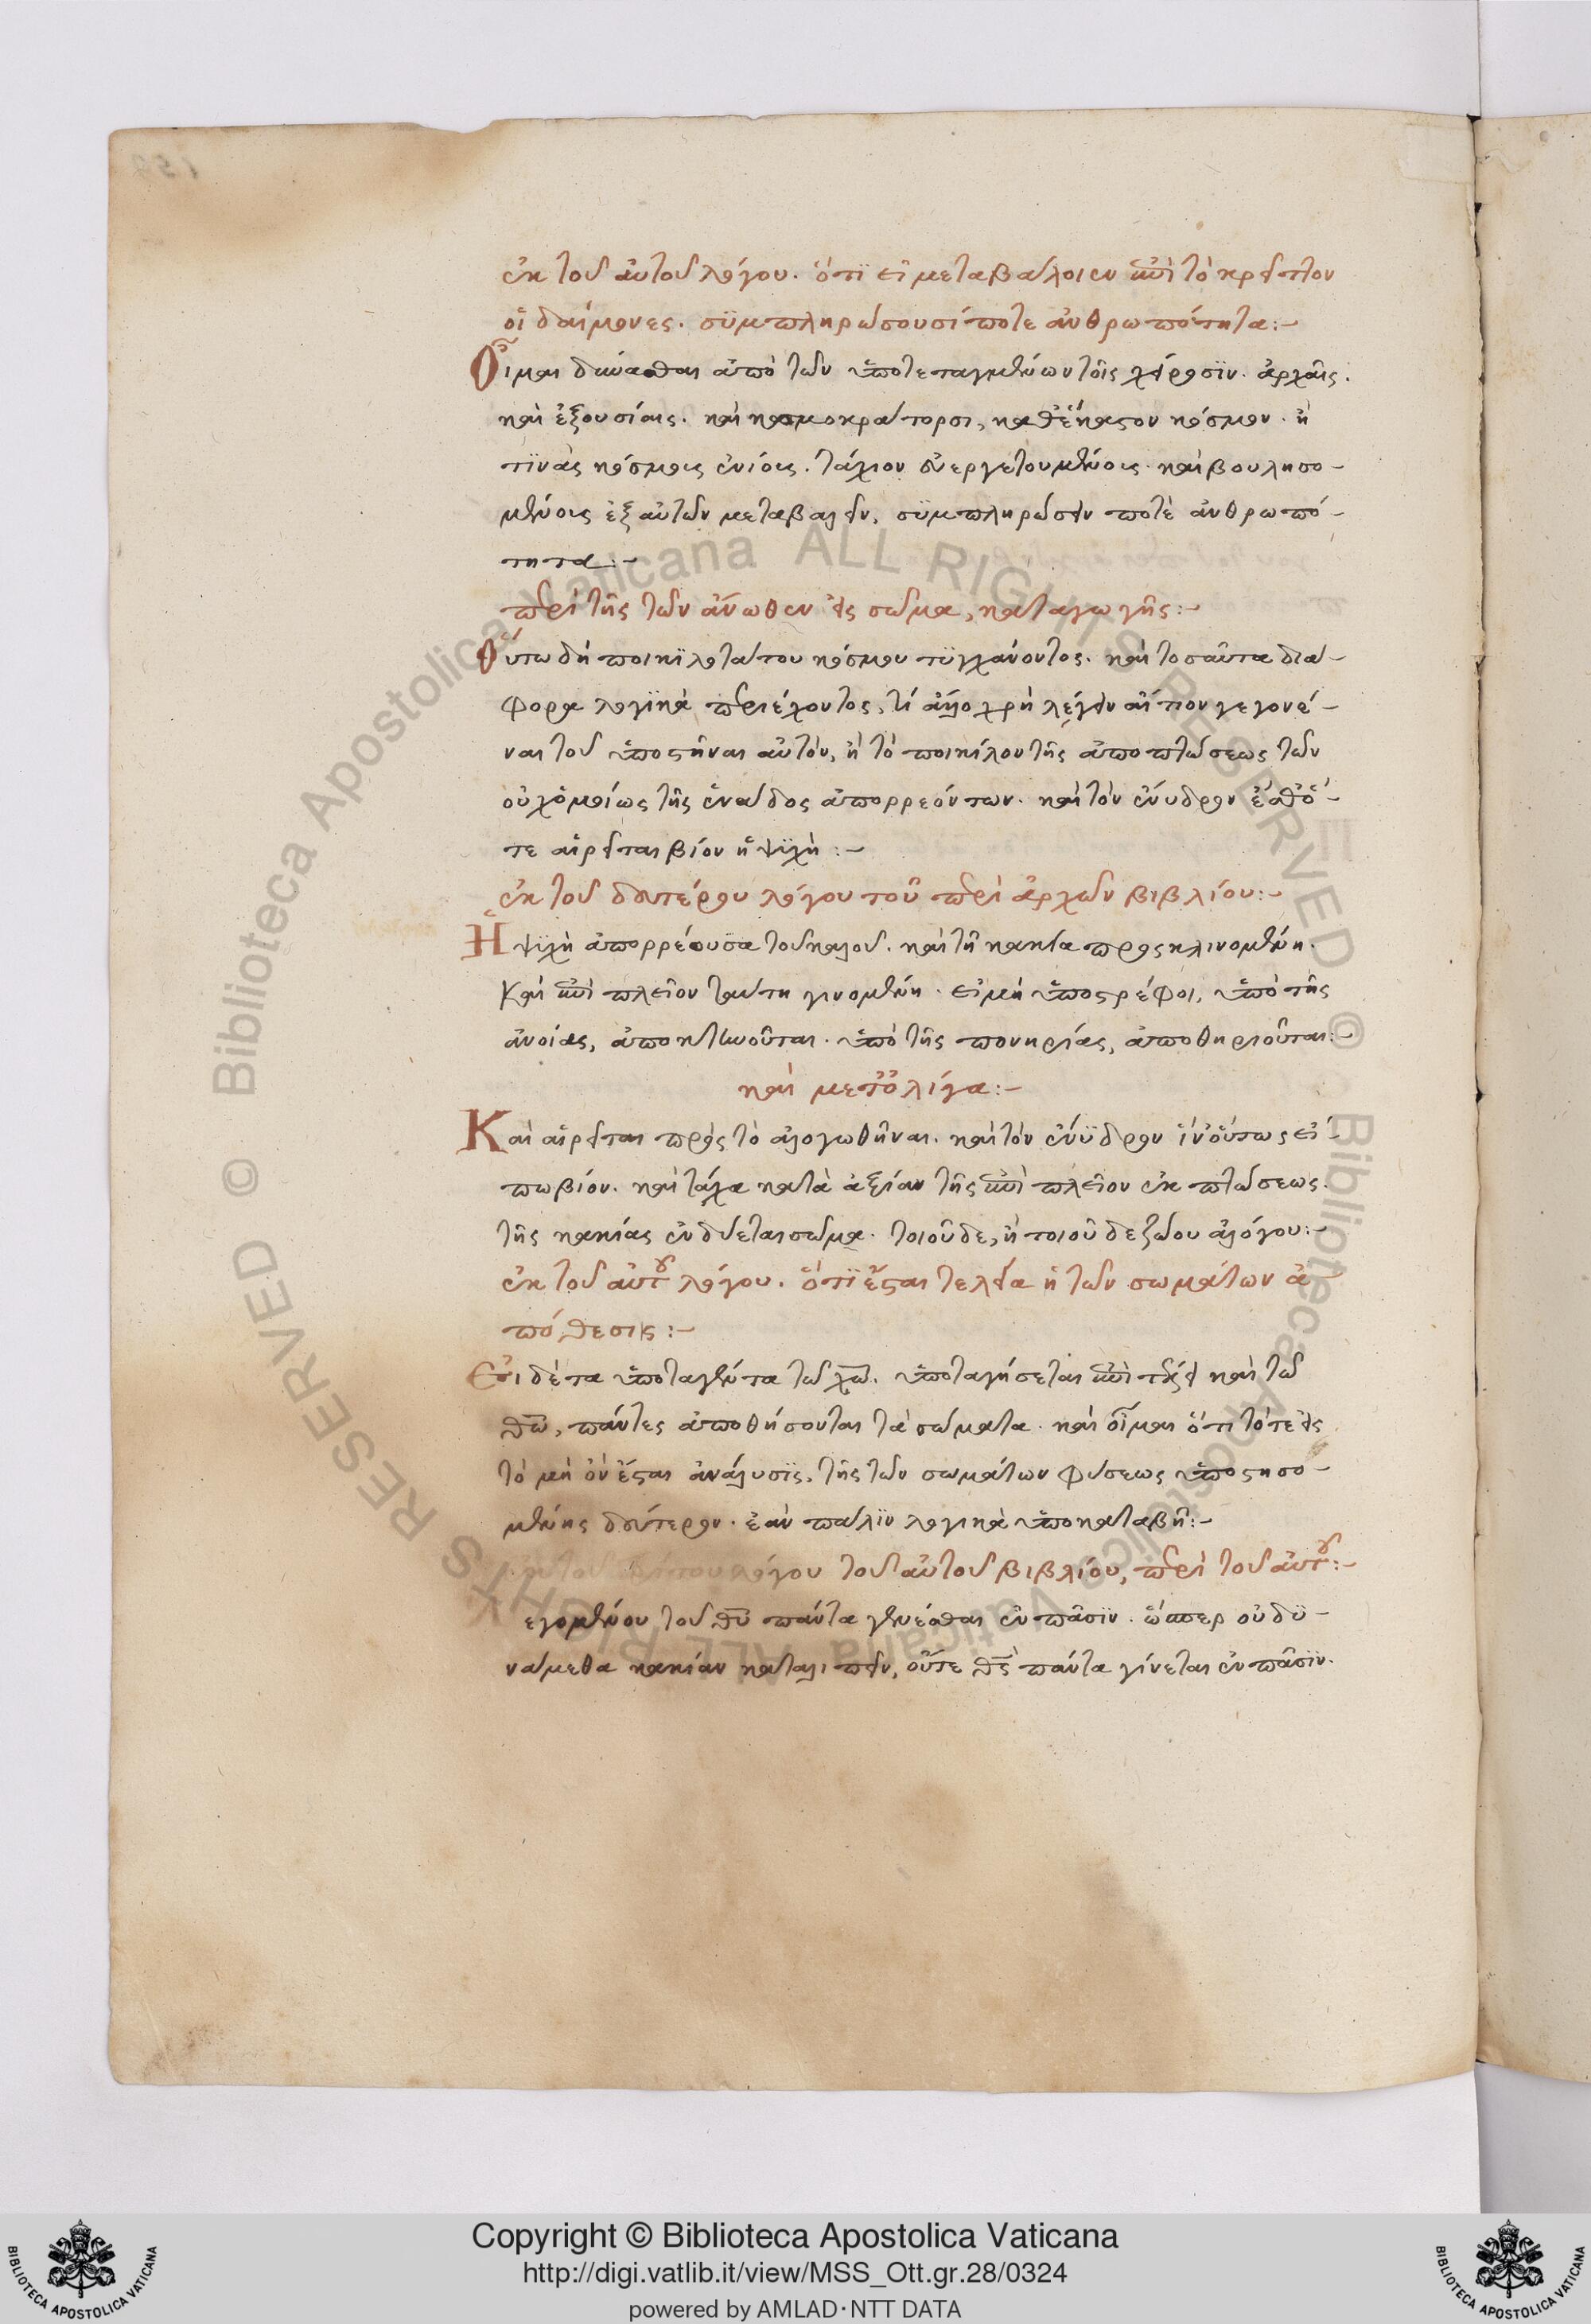 ἐκ τοῦ αὐτοῦ λόγου. ὅτι εἰ μεταβάλοιεν ἐπὶ τὸ κρεῖττον
οἱ δαίμονες. συμπληρώσουσί ποτε ἀνθρωπότητα:-
Οἶμαι δύνασθαι ἀπὸ τῶν ὑποτεταγμένων τοῖς χείροσιν. ἀρχαῖς.
καὶ ἐξουσίαις. καὶ κοσμοκράτορσι, καθ' ἕκαστον κόσμον. ἢ
τινὰς κόσμοις ἐνίοις. τάχιον εὐεργετουμένοις. καὶ βουλησο-
μένοις ἐξ αὐτῶν μεταβαλεῖν, συμπληρώσειν ποτὲ ἀνθρωπό-
τητα:-
περὶ τῆς τῶν ἄνωθεν εἰς σῶμα, καταγωγῆς:-
Οὕτω δὴ ποικιλοτάτου κόσμου τυγχάνοντος. καὶ τοσαῦτα διά-
φορα λογικὰ περιέχοντος, τί ἄλλο χρὴ λέγειν αἴτιον γεγονέ-
ναι τοῦ ὑποστῆναι αὐτόν, ἢ τὸ ποικίλον τῆς ἀποπτώσεως τῶν
οὐχ ὁμοίως τῆς ἑνάδος ἀπορρεόντων. καὶ τὸν ἔνυδρον ἔσθ' ὅ-
τε αἱρεῖται βίον ἡ ψυχή:-
ἐκ τοῦ δευτέρου λόγου τοῦ περὶ ἀρχῶν βιβλίου:-
Ἡ ψυχὴ ἀπορρέουσα τοῦ καλοῦ. καὶ τῆ κακία προσκλινομένη.
Καὶ ἐπὶ πλεῖον ταύτη γινομένη. εἰ μὴ ὑποστρέφοι, ὑπὸ τῆς
ἀνοίας, ἀποκτηνοῦται. ὑπὸ τῆς πονηρίας, ἀποθηριοῦται:-
καὶ μετ' ὀλίγα:-
Καὶ αἱρεῖται πρὸς τὸ ἀλογωθῆναι. καὶ τὸν ἔνυδρον ἵν' οὕτως εἴ-
πω βίον. καὶ τάχα κατὰ ἀξίαν τῆς ἐπὶ πλεῖον ἐκπτώσεως.
τῆς κακίας ἐνδύεται σῶμα. τοιοῦδε, ἢ τοιοῦδε ζώου ἀλόγου:-
ἐκ τοῦ αὐτοῦ λόγου. ὅτι ἔσται τελεία ἡ τῶν σωμάτων ἀ-
πόθεσις:-
Εἰ δὲ τὰ ὑποταγέντα τῶ χῶ. ὑποταγήσεται ἐπὶ τέλει καὶ τῶ
θῶ, πάντες ἀποθήσονται τὰ σώματα. καὶ οἶμαι ὅτι τότε εἰς
τὸ μὴ ὂν ἔσται ἀνάλυσις, τῆς τῶν σωμάτων φύσεως ὑποστησο-
μένης δεύτερον. ἐὰν πάλιν λογικὰ ὑποκαταβῆ:-
ἐκ τοῦ τρίτου λόγου τοῦ αὐτοῦ βιβλίου, περὶ τοῦ αὐτοῦ:-
λεγομένου τοῦ θῦ πάντα γενέσθαι ἐν πᾶσιν. ὥσπερ οὐ δυ-
νάμεθα κακίαν καταλιπεῖν, οὔτε θς πάντα γίνεται ἐν πᾶσιν.
Copyright © Biblioteca Apostolica Vaticana
http://digi.vatlib.it/view/MSS_Ott.gr.28/0324
powered by AMLAD·NTT DATA
BIBLIOTECA APOSTOLICA VATICANA
BIBLIOTECA APOSTOLICA VATICANA